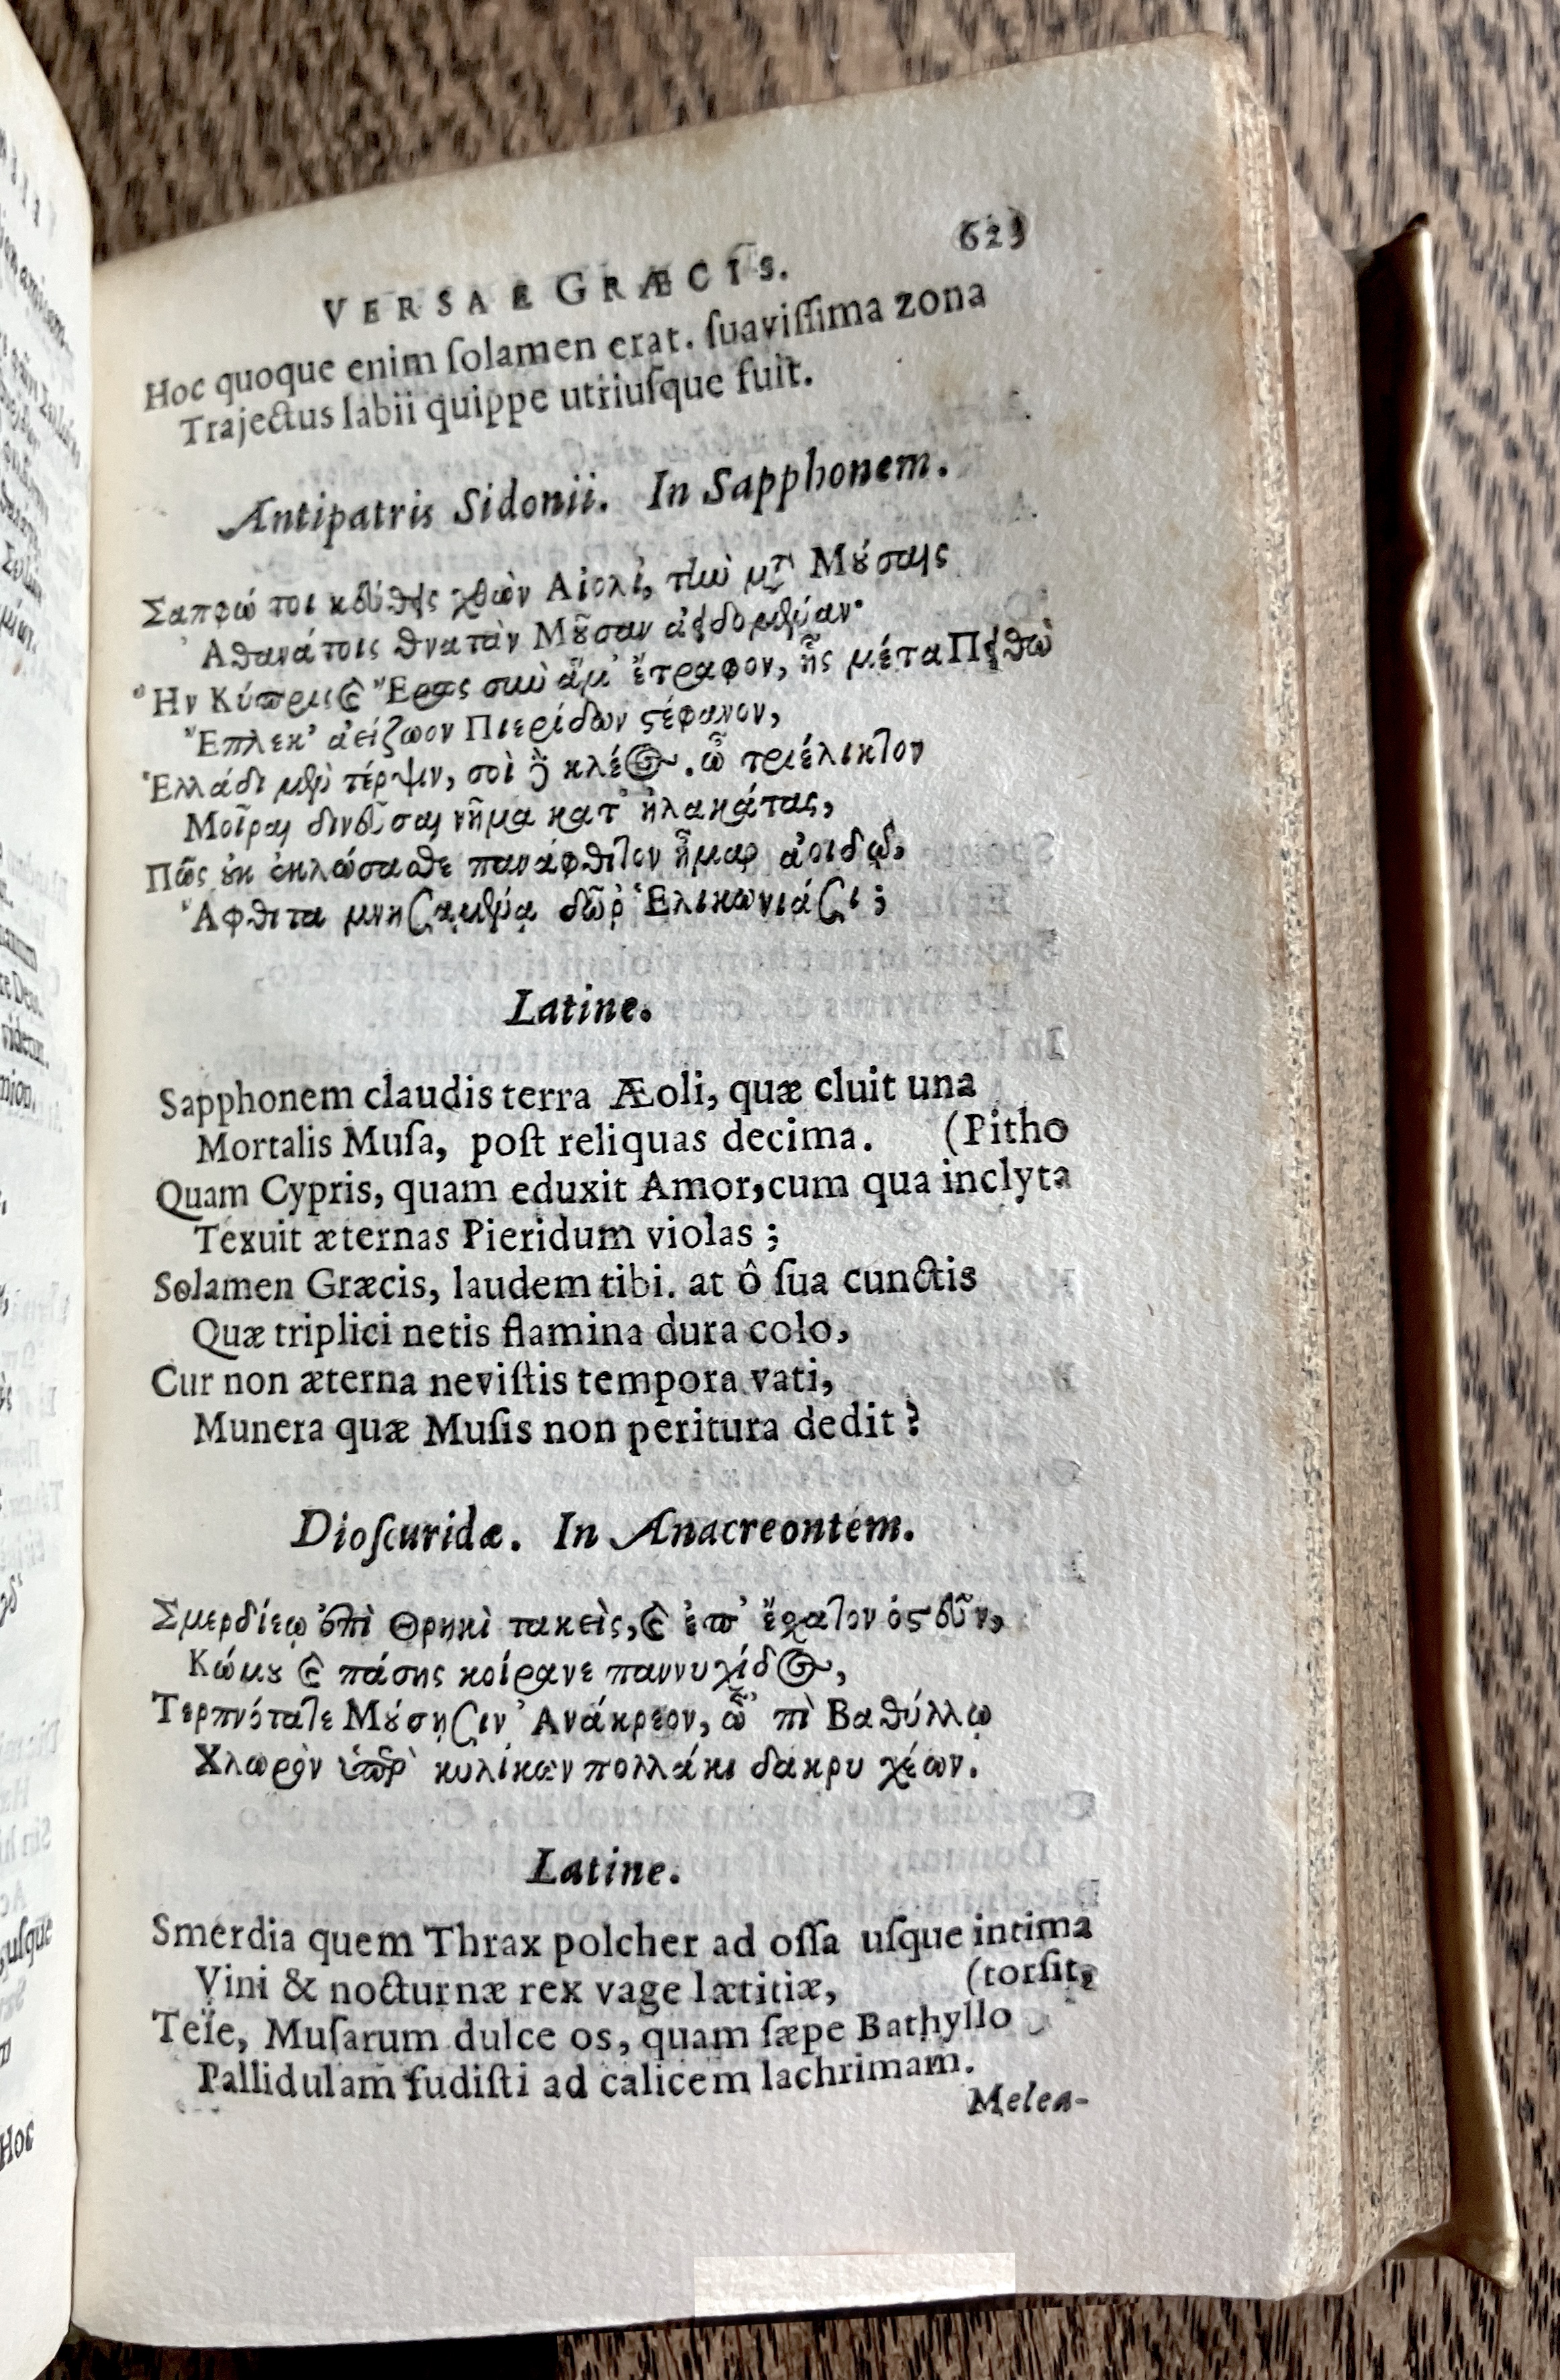 VERSAE GRÆCIS. 623
Hoc quoque enim ſolamen erat. ſuaviſſima zona
Trajectus labii quippe utriuſque fuit.
Antipatris Sidonii. In Sapphonem.
Σαπφώ τοι κεύθεις χθὼν Αἰολὶ, τὴν μτ̃ Μούσαις
Ἀθανάτοις θνατὰν Μοῦσαν ἀειδομέναν·
Ἣν Κύπρις καὶ Ἔρως σὺν ἅμ' ἔτραφον, ἧς μέτα Πειθὼ
Ἔπλεκ' ἀείζωον Πιερίδων στέφανον,
Ἑλλάδι μὲν τέρψιν, σοὶ δὲ κλέος. ὦ τριέλικτον
Μοῖραι δινεῦσαι νῆμα κατ' ἠλακάτας,
Πῶς οὐκ ἐκλώσασθε πανάφθιτον ἦμαρ ἀοιδῷ,
Ἄφθιτα μησαμένᾳ δῶρ' Ἑλικωνιάσι;
Latine.
Sapphonem claudis terra Æoli, quæ cluit una
Mortalis Muſa, poſt reliquas decima. (Pitho
Quam Cypris, quam eduxit Amor, cum qua inclyta
Texuit æternas Pieridum violas ;
Solamen Græcis, laudem tibi. at ô ſua cunctis
Quæ triplici netis ſtamina dura colo,
Cur non æterna neviſtis tempora vati,
Munera quæ Muſis non peritura dedit ?
Dioſcuridæ. In Anacreontem.
Σμερδίεῳ ἐπὶ Θρηκὶ τακεὶς, καὶ ἐπ' ἔσχατον ὀστεῦν,
Κώμου καὶ πάσης κοίρανε παννυχίδος,
Τερπνότατε Μούσησιν Ἀνάκρεον, ὦ 'πὶ Βαθύλλῳ
Χλωρὸν ὑπὲρ κυλίκων πολλάκι δάκρυ χέων.
Latine.
Smerdia quem Thrax polcher ad oſſa uſque intima
Vini & nocturnæ rex vage lætitiæ, (torſit,
Teïe, Muſarum dulce os, quam ſæpe Bathyllo
Pallidulam fudiſti ad calicem lachrimam.
Melea-